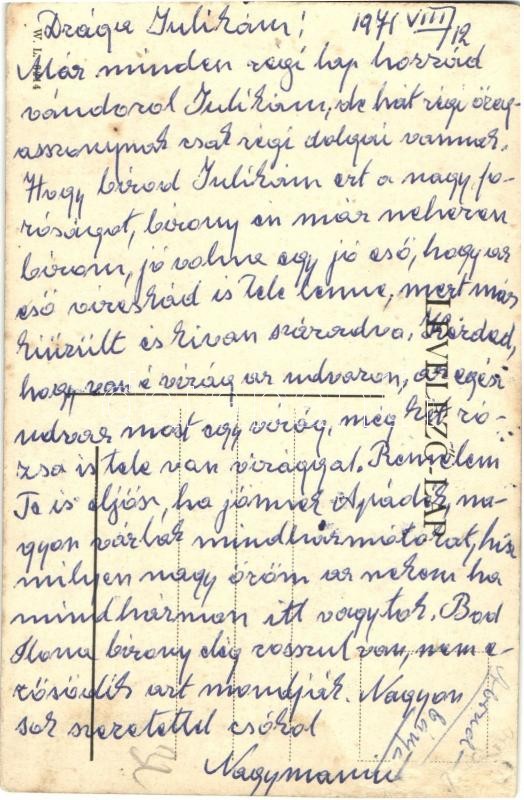 Drága Julikám! 1971 VIII/12
Már minden régi lap hozzád
vándorol Julikám, de hát régi öreg-
asszonynak csak régi dolgai vannak.
Hogy birod Julikám ezt a nagy for-
róságot, bizony én már nehezen
birom, jó volna egy jó eső, hogy az
eső vizeskád is tele lenne, mert már
kiürült és ki van száradva. Kérded,
hogy van é virág az udvaron, az egész
udvar most egy virág, még két ró-
zsa is tele van virággal. Remélem
Te is eljösz, ha jönnek Apádék, na-
gyon várlak mindhármótokat, hisz
milyen nagy öröm az nekem ha
mindhárman itt vagytok. Bod
Ilona bizony elég rosszul van, nem e-
rősödik azt mondják. Nagyon
sok szeretettel csókol
Nagymama
LEVELEZŐ-LAP
W. L.